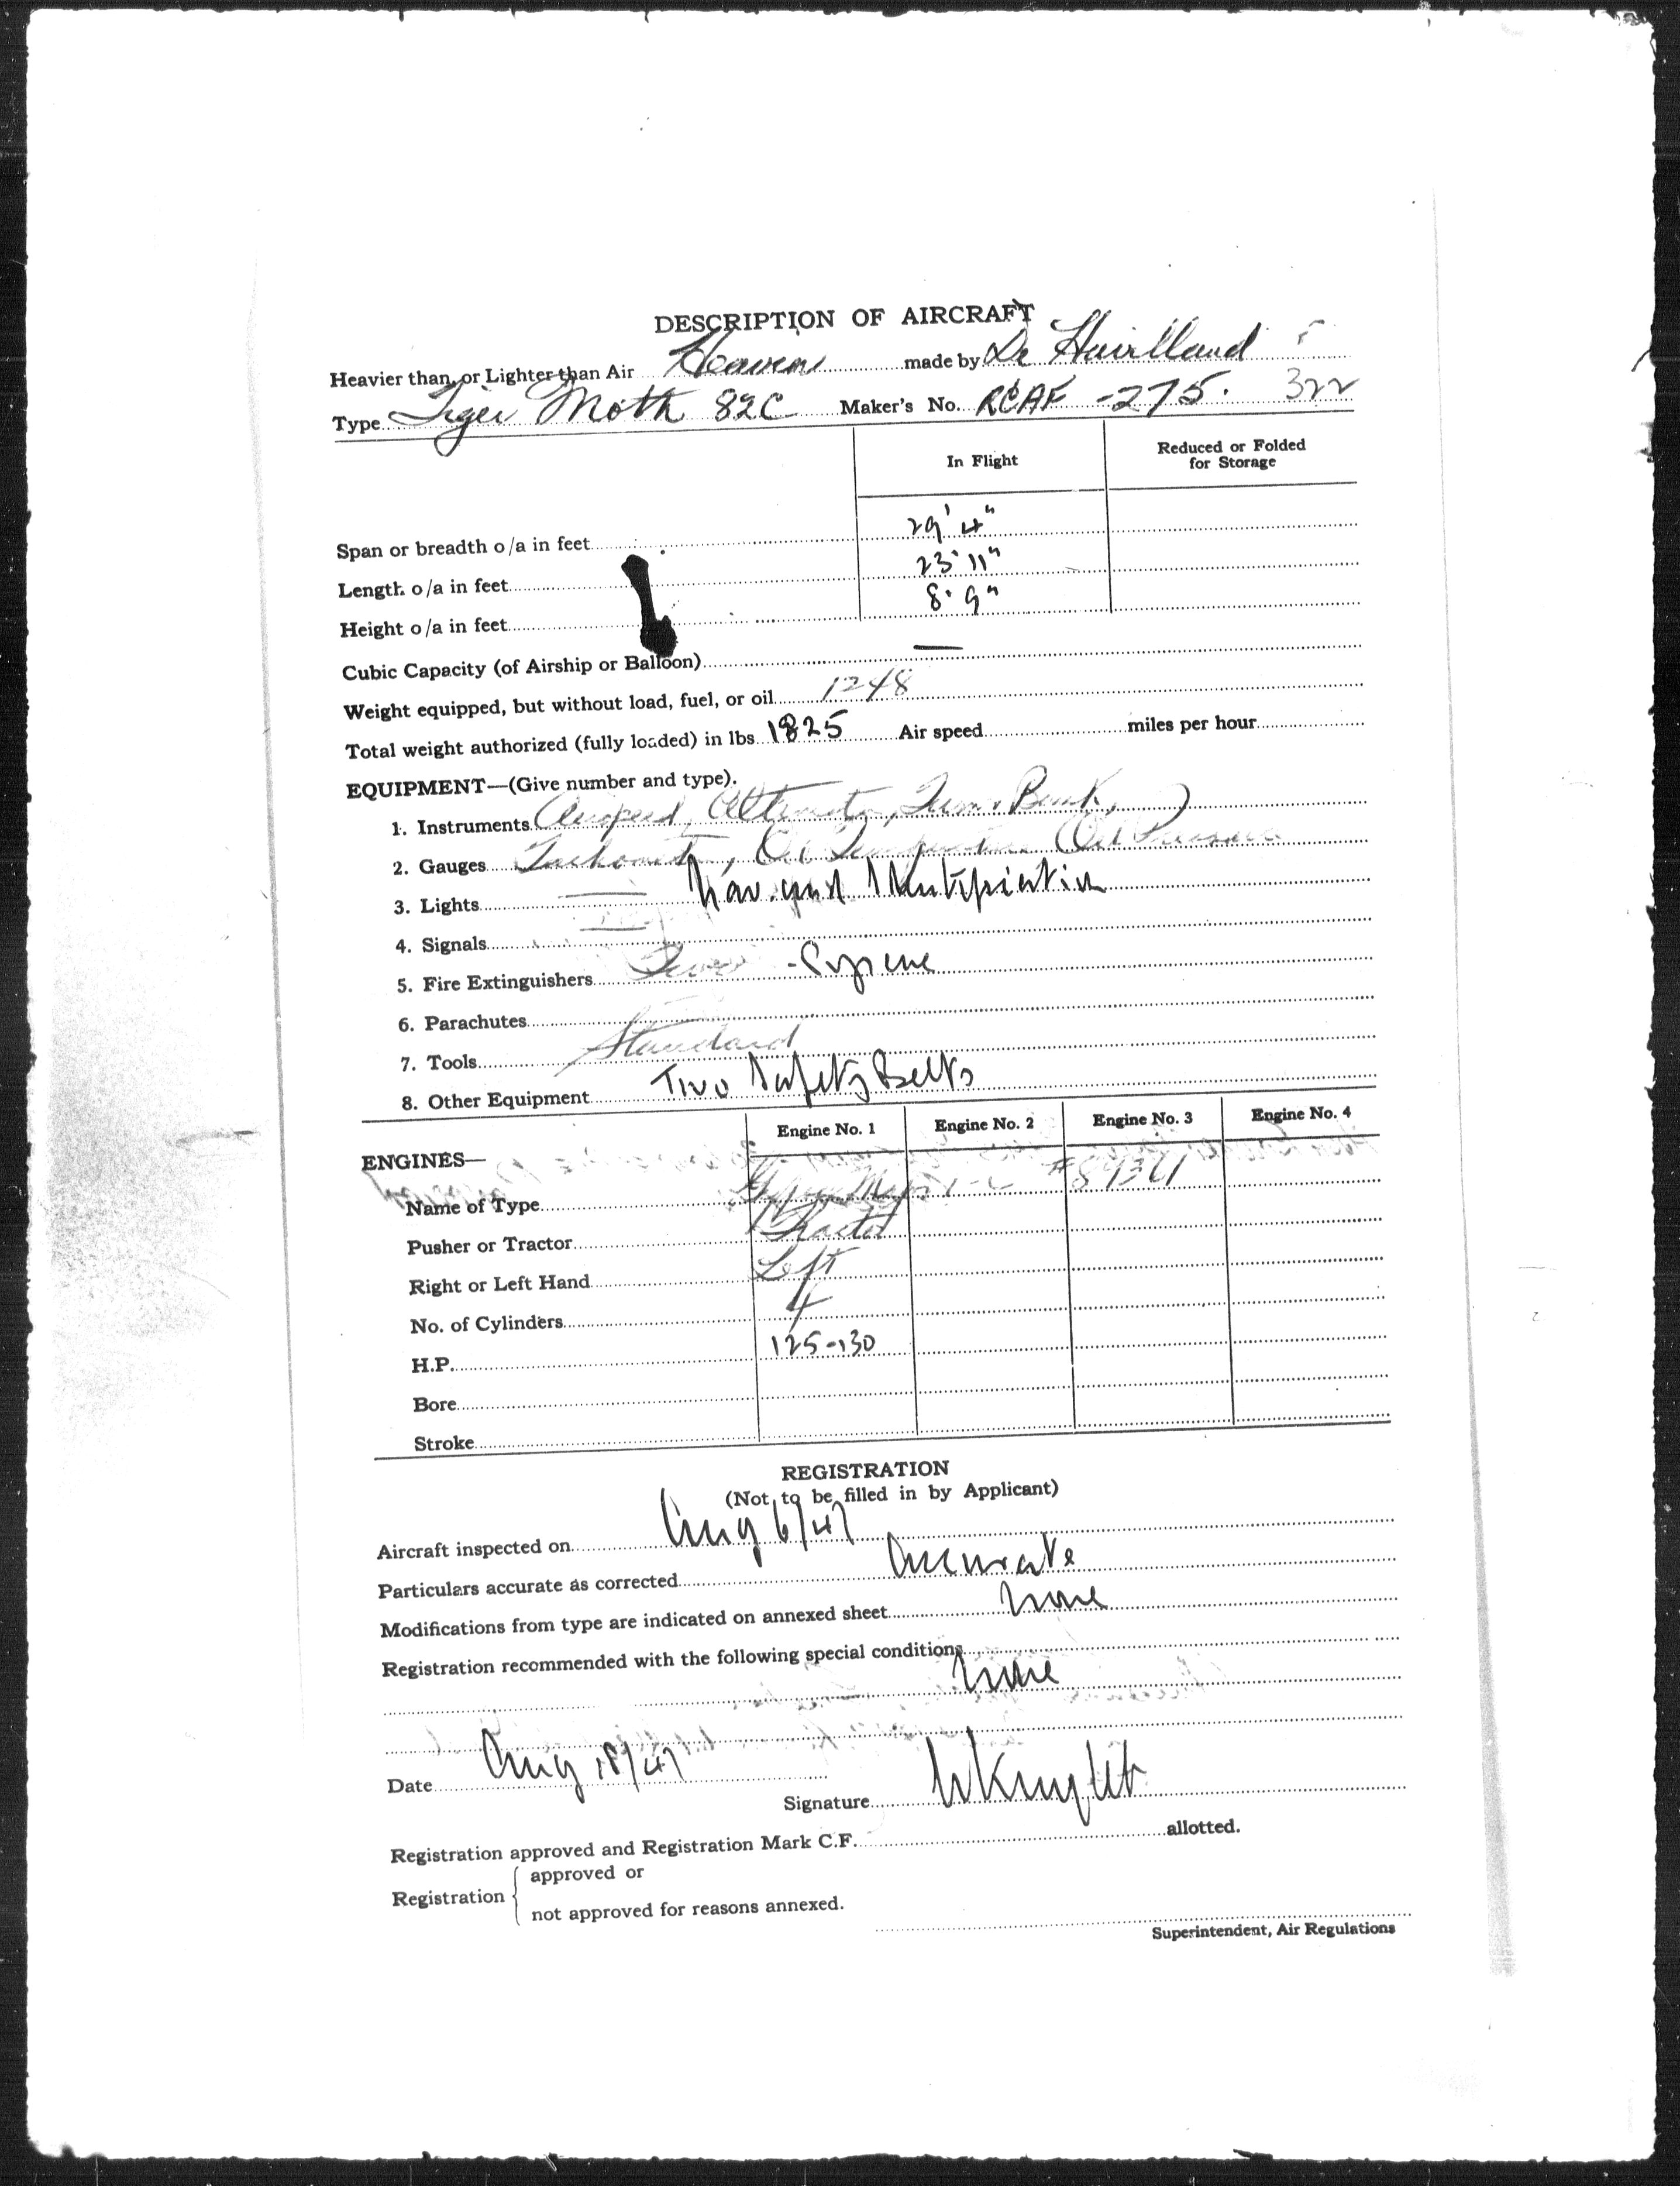 DESCRIPTION OF AIRCRAFT
Heavier than, or Lighter than Air Heavier made by De Havilland
Type Tiger Moth 82C Maker's No. RCAF -275. 322
In Flight Reduced or Folded for Storage
Span or breadth o/a in feet 29' 4"
Length o/a in feet 23' 11"
Height o/a in feet 8' 9"
Cubic Capacity (of Airship or Balloon) —
Weight equipped, but without load, fuel, or oil 1248
Total weight authorized (fully loaded) in lbs 1825 Air speed miles per hour
EQUIPMENT—(Give number and type).
1. Instruments Airspeed, Altimeter, Turn & Bank,
2. Gauges Tachometer, Oil Temperature Oil Pressure
3. Lights Nav. and Identification
4. Signals
5. Fire Extinguishers Two - Pyrene
6. Parachutes
7. Tools Standard
8. Other Equipment Two Safety Belts
Engine No. 1 Engine No. 2 Engine No. 3 Engine No. 4
ENGINES—
Name of Type Gipsy Major 1-C
Pusher or Tractor Tractor
Right or Left Hand Left
No. of Cylinders 4
H.P. 125-130
Bore
Stroke
REGISTRATION
(Not to be filled in by Applicant)
Aircraft inspected on Aug 6/47
Particulars accurate as corrected Accurate
Modifications from type are indicated on annexed sheet None
Registration recommended with the following special conditions None
Date Aug 18/47
Signature WKnight
Registration approved and Registration Mark C.F. allotted.
Registration { approved or
not approved for reasons annexed.
Superintendent, Air Regulations